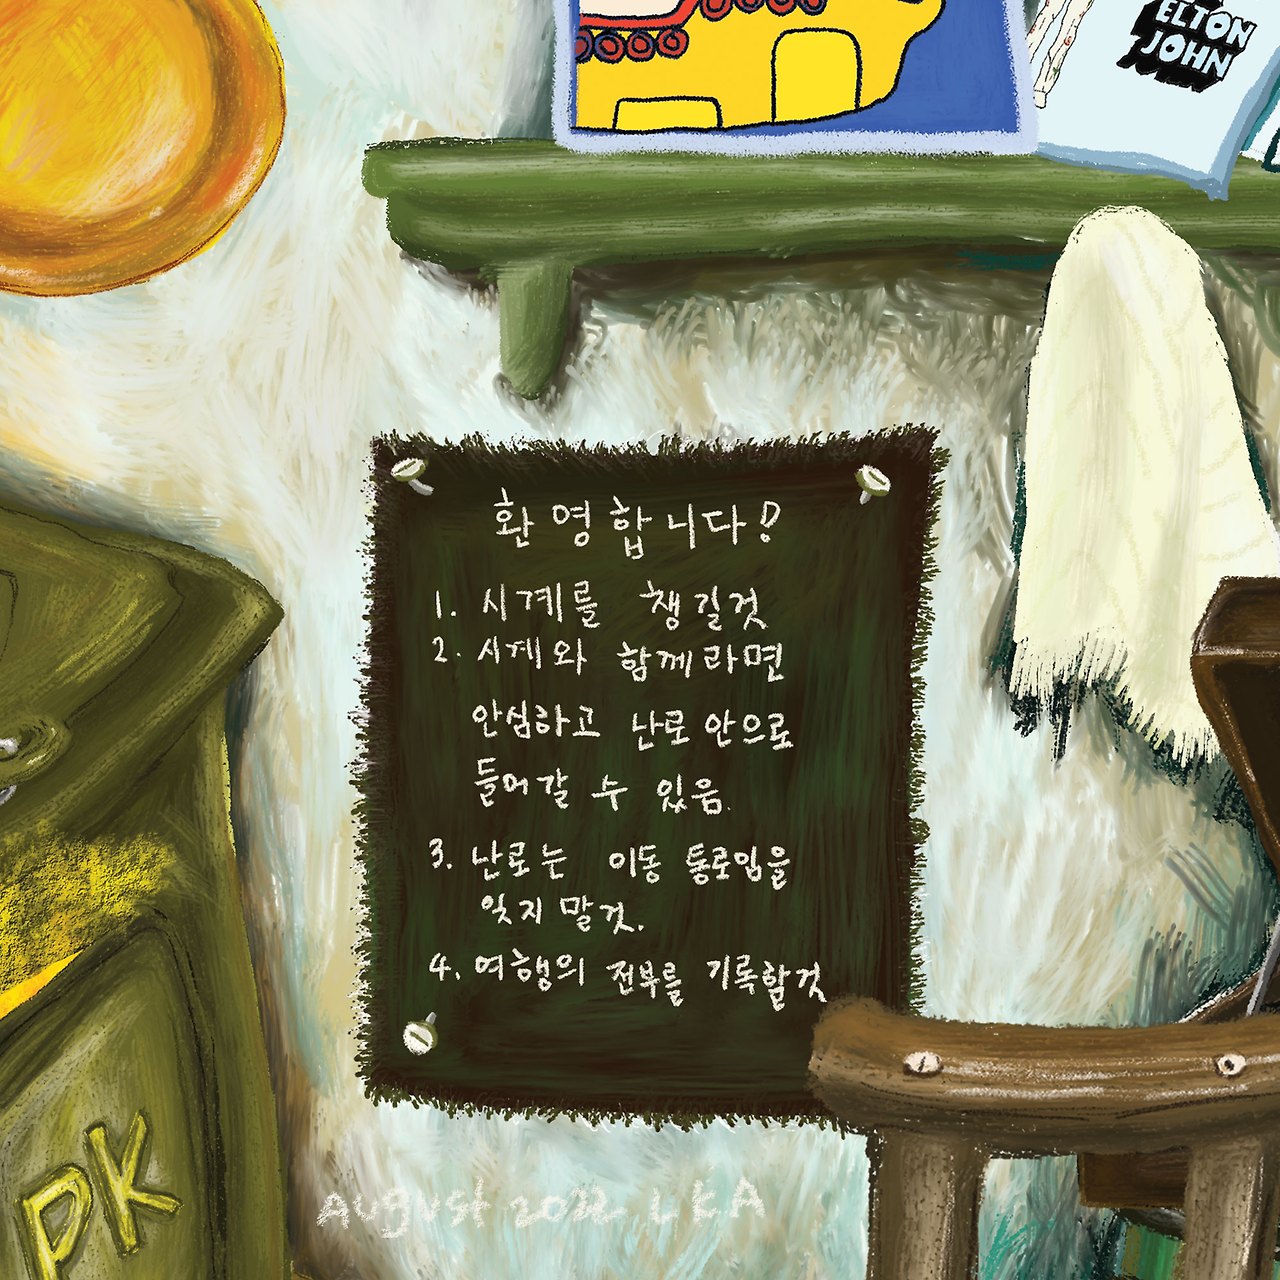 ELTON
JOHN
환영합니다!
1. 시계를 챙길것
2. 시계와 함께라면
안심하고 난로 안으로
들어갈 수 있음.
3. 난로는 이동 통로임을
잊지 말것.
4. 여행의 전부를 기록할것
PK
August 2022 LEA